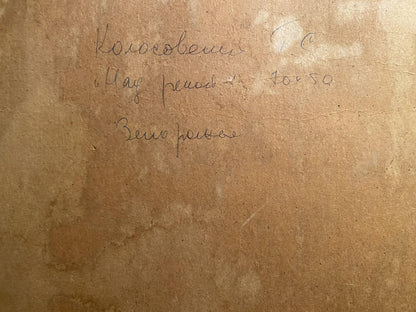 Колосовский Г С
"Над рекой" 70х50
Запорожье